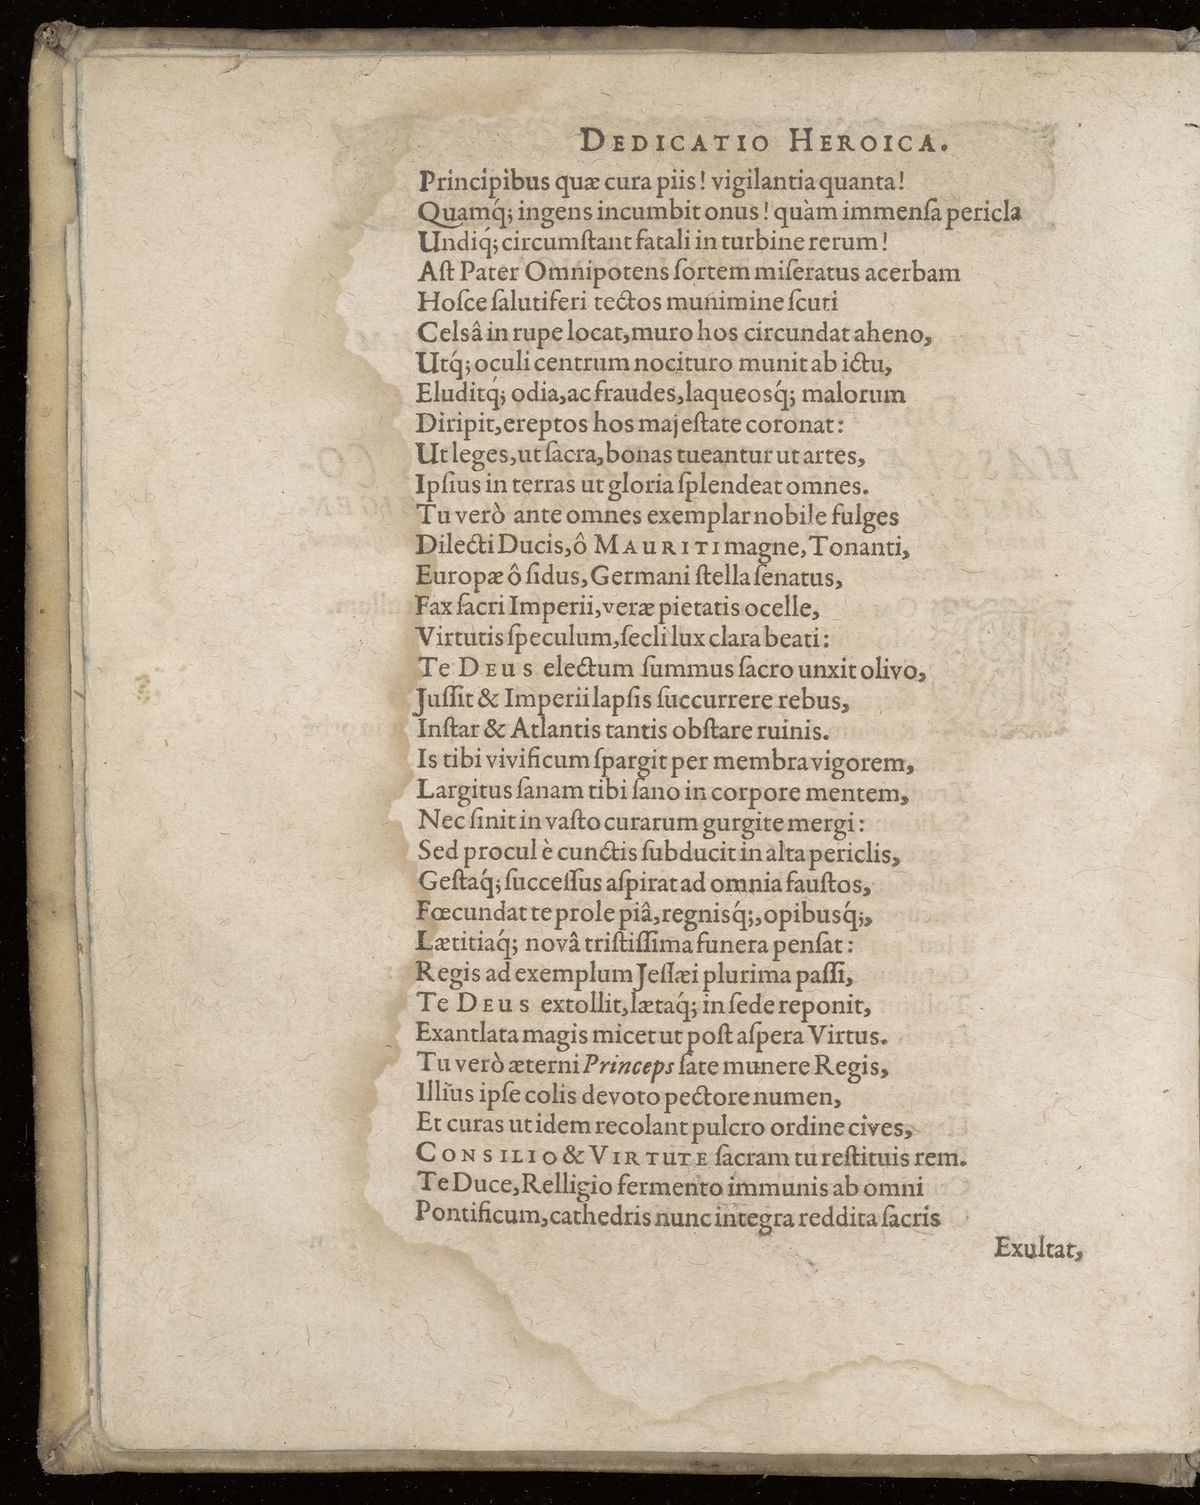 DEDICATIO HEROICA.
Principibus quæ cura piis! vigilantia quanta!
Quamq́; ingens incumbit onus! quàm immenſa pericla
Undiq́; circumſtant fatali in turbine rerum!
Aſt Pater Omnipotens ſortem miſeratus acerbam
Hoſce ſalutiferi tectos munimine ſcuti
Celsâ in rupe locat, muro hos circundat aheno,
Utq́; oculi centrum nocituro munit ab ictu,
Eluditq́; odia, ac fraudes, laqueosq́; malorum
Diripit, ereptos hos majeſtate coronat:
Ut leges, ut ſacra, bonas tueantur ut artes,
Ipſius in terras ut gloria ſplendeat omnes.
Tu verò ante omnes exemplar nobile fulges
Dilecti Ducis, ô MAURITI magne, Tonanti,
Europæ ô ſidus, Germani ſtella ſenatus,
Fax ſacri Imperii, veræ pietatis ocelle,
Virtutis ſpeculum, ſecli lux clara beati:
Te DEUS electum ſummus ſacro unxit olivo,
Juſſit & Imperii lapſis ſuccurrere rebus,
Inſtar & Atlantis tantis obſtare ruinis.
Is tibi vivificum ſpargit per membra vigorem,
Largitus ſanam tibi ſano in corpore mentem,
Nec ſinit in vaſto curarum gurgite mergi:
Sed procul è cunctis ſubducit in alta periclis,
Geſtaq́; ſucceſſus aſpirat ad omnia fauſtos,
Fœcundat te prole piâ, regnisq́;, opibusq́;,
Lætitiaq́; novâ triſtiſſima funera penſat:
Regis ad exemplum Jeſſæi plurima paſſi,
Te DEUS extollit, lætaq́; in ſede reponit,
Exantlata magis micet ut poſt aſpera Virtus.
Tu verò æterni Princeps ſate munere Regis,
Illĭus ipſe colis devoto pectore numen,
Et curas ut idem recolant pulcro ordine cives,
CONSILIO & VIRTUTE ſacram tu reſtituis rem.
Te Duce, Relligio fermento immunis ab omni
Pontificum, cathedris nunc integra reddita ſacris
Exultat,